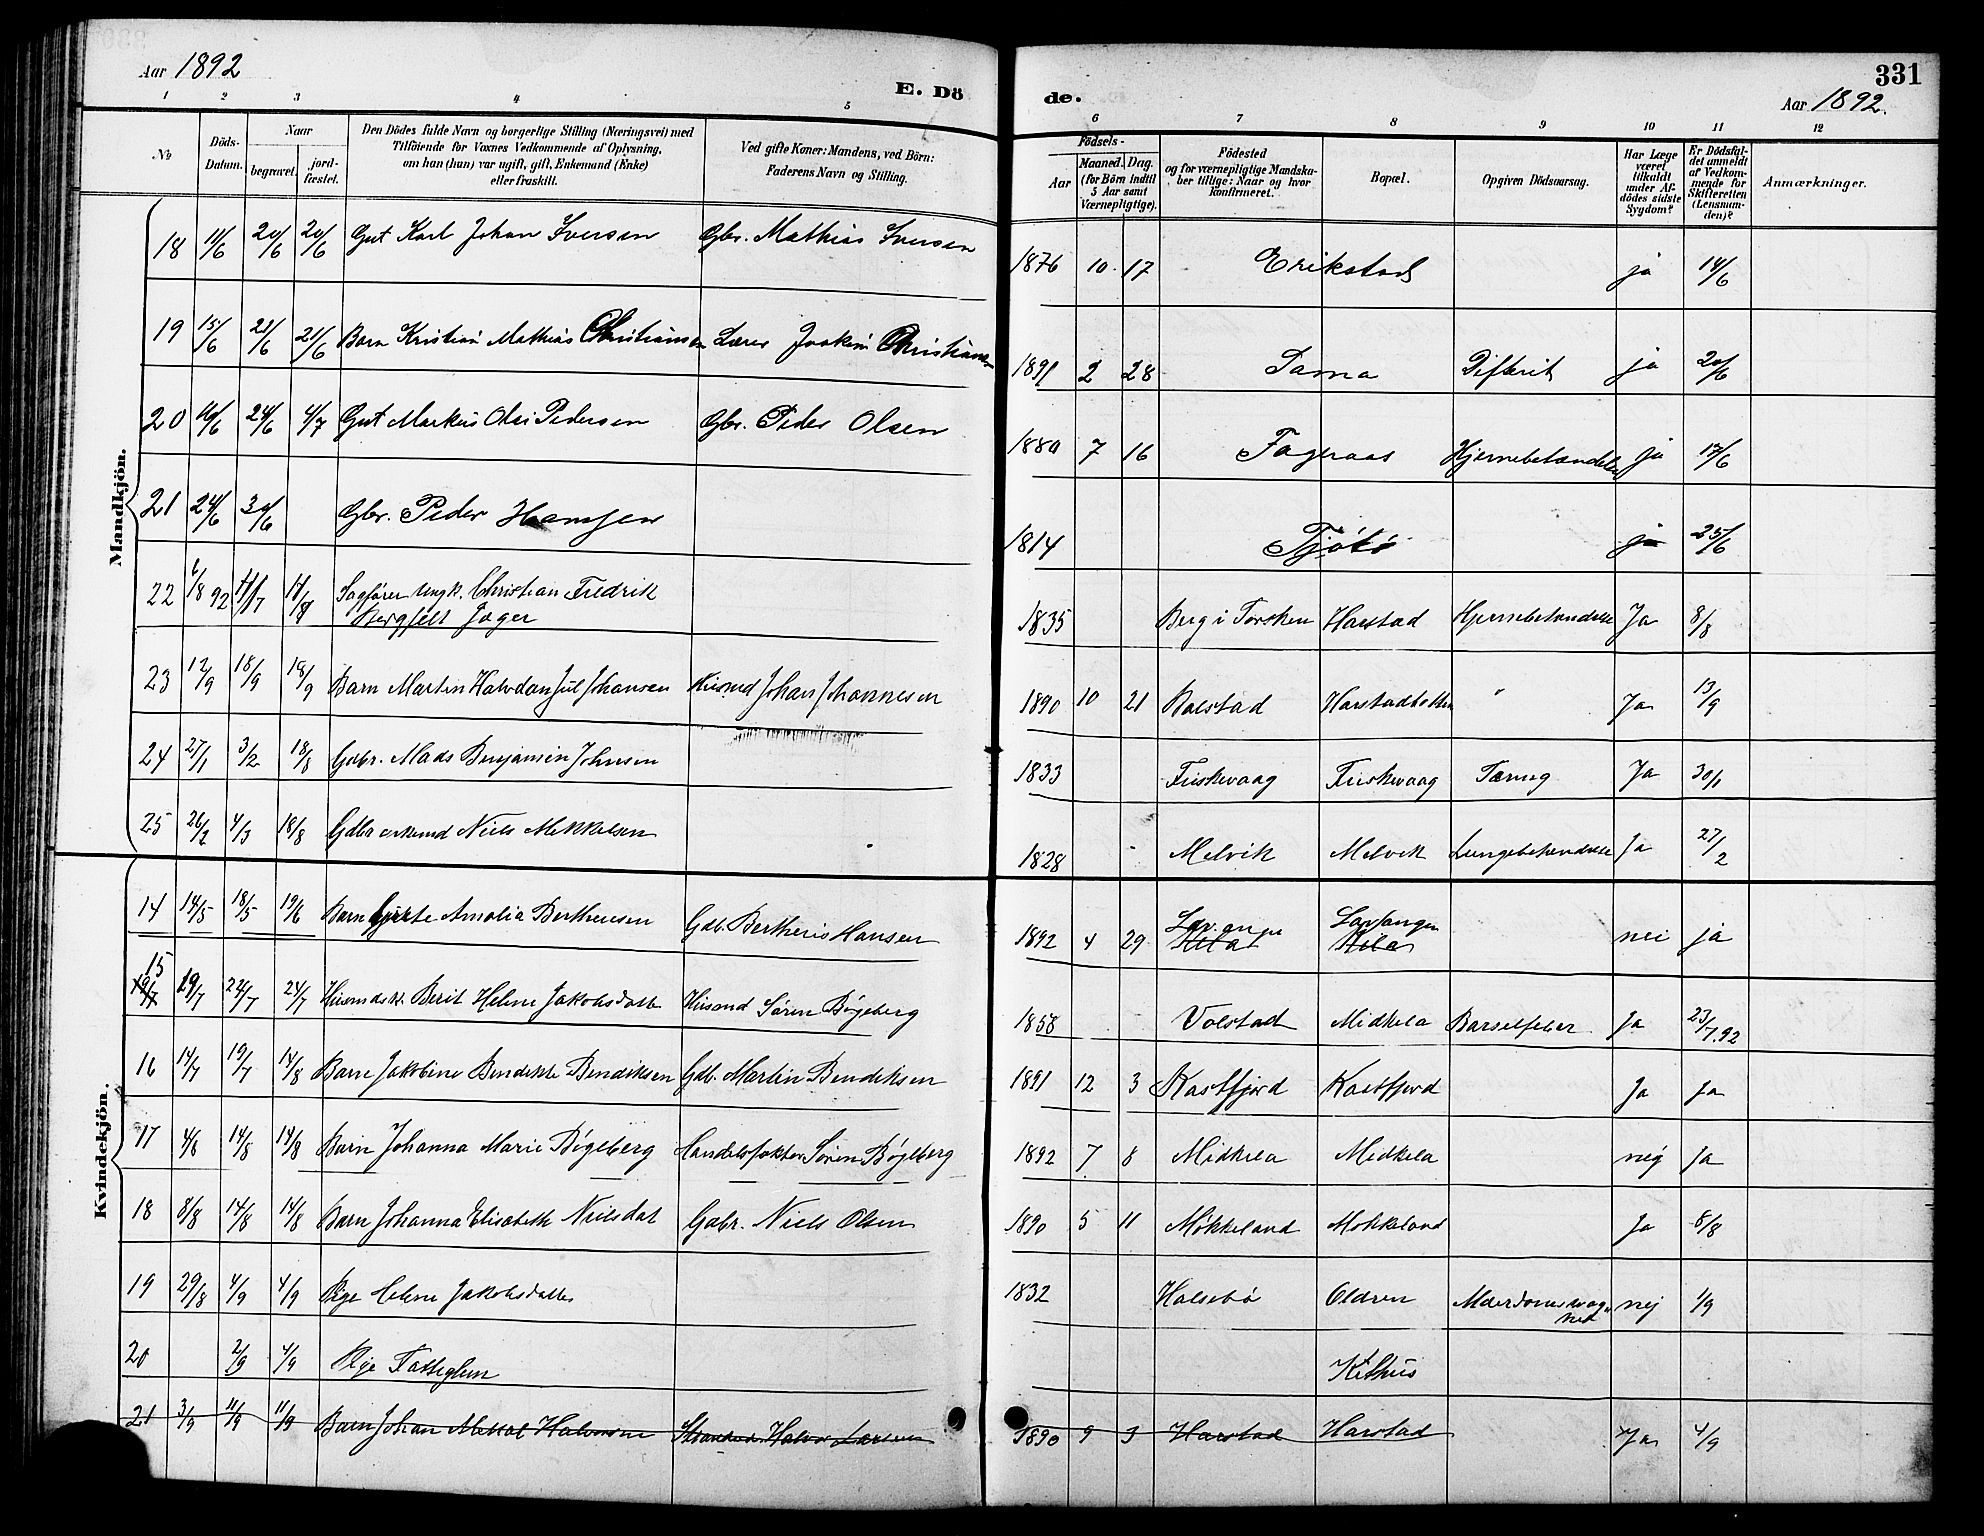 Aar 1892
E. Dö
de.
331
Aar 1892.
1 2 3 4 5 6 7 8 9 10 11 12
№
Döds-Datum.
Naar
begravet.
jord-fæstet.
Den Dödes fulde Navn og borgerlige Stilling (Næringsvei) med
Tilföiende for Voxnes Vedkommende af Oplysning,
om han (hun) var ugift, gift, Enkemand (Enke)
eller fraskilt.
Ved gifte Koner: Mandens, ved Börn:
Faderens Navn og Stilling.
Födsels-
Aar
Maaned. Dag.
(for Börn indtil
5 Aar samt
Værnepligtige).
Födested
og for værnepligtige Mandska-
ber tillige: Naar og hvor
konfirmeret.
Bopæl.
Opgiven Dödsaarsag.
Har Læge
været
tilkaldt
under Af-
dödes sidste
Sygdom?
Er Dödsfal-
det anmeldt
af Vedkom-
mende for
Skifteretten
(Lensman-
den)?
Anmærkninger.
Mandkjön.
18 11/6 20/6 20/6 Gut Karl Johan Iversen Gbr. Mathias Iversen 1876 10 17 Erikstad ja 14/6
19 15/6 21/6 21/6 Barn Kristian Mathias Christiansen Lærer Joakim Christiansen 1891 2 28 Sama Difterit ja 20/6
20 16/6 24/6 4/7 Gut Markus Olai Pedersen Gbr. Peder Olsen 1880 7 16 Fageraas Hjernebetændelse ja 17/6
21 24/6 30/6 Gbr. Peder Hansen 1814 Tjötö ja 25/6
22 6/8 92 Sagfører Ungk. Christian Fredrik
Bergfelt Jager 1835 Berg i Torsken Harstad Hjernebetændelse Ja 8/8
23 12/9 18/9 18/9 Barn Martin Halvdan Jul Johansen Husmd Johan Johannesen 1890 10 21 Harstadbotten " Ja 13/9
24 27/1 3/2 18/8 Gdbr. Mads Benjamin Johnsen 1833 Fuskevaag Fuskevaag Tæring Ja 30/1
25 26/2 4/3 18/8 Gdbr enkemd Niels Mekkelsen 1828 Melvik Melvik Lungebetændelse Ja 27/2
Kvindekjön.
14 14/5 18/5 19/6 Barn Amalia Bertheusen Gdb. Bertheus Hansen 1892 4 29 Kila Kila nei ja
15 19/7 22/7 24/7 Husmdsk. Berit Helene Jakobsdatter Husmd Søren Bøgeberg 1858 Volstad Midkila Barselfeber Ja 23/7.92
16 14/7 19/7 14/8 Barn Jakobine Bendikte Bendiksen Gdb. Martin Bendiksen 1891 12 3 Kastfjord Kastfjord Ja Ja
17 4/8 14/8 14/8 Barn Johanna Marie Bøgeberg Handelsfaktor Søren Bøgeberg 1892 7 8 Midkila Midkila nej Ja
18 8/8 14/8 14/8 Barn Johanna Elisabeth Nielsdat Gabr. Niels Olsen 1890 5 11 Møkkeland Møkkeland Ja 8/8
19 29/8 4/9 4/9 Pige Helene Jakobsdatter 1832 Halsebø Oldren Alderdomssvag-
hed nej 1/9
20 2/9 4/9 Pige Fattiglem
21 3/9 11/9 11/9 Barn Johan Mekal Halvorsen Strandsd. Halvor Larsen 1890 9 3 Harstad Harstad Ja 4/9